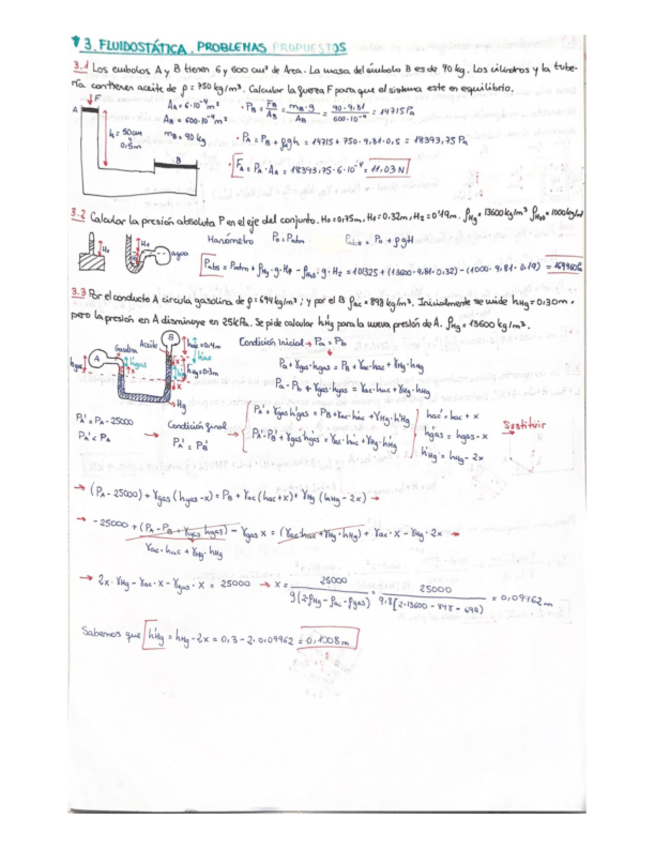 3. FLUIDOSTÁTICA. PROBLEMAS PROPUESTOS
3.1 Los embolos A y B tienen 6 y 600 cm² de Area. La masa del émbolo B es de 90 kg. Los cilindros y la tube-
ría contienen aceite de ρ = 750 kg/m³. Calcular la fuerza F para que el sistema este en equilibrio.
F
A
A_A = 6·10⁻⁴ m²
A_B = 600·10⁻⁴ m²
m_B = 90 kg
h = 50cm
0,5m
B
· P_B = F_B/A_B = m_B·g/A_B = 90·9,81/600·10⁻⁴ = 14715 Pa
· P_A = P_B + ρgh = 14715 + 750·9,81·0,5 = 18393,75 Pa
· F_A = P_A·A_A = 18393,75·6·10⁻⁴ = 11,03 N
3.2 Calcular la presión absoluta P en el eje del conjunto. H0=0,75m, H1=0,32m, H2=0,19m. ρHg=13600kg/m³ ρH20=1000kg/m³
agua
Manómetro P0 = Patm Pabs = P0 + ρgH
Pabs = Patm + ρHg·g·H1 - ρH20·g·H2 = 101325 + (13600·9,81·0,32) - (1000·9,81·0,19) =
3.3 Por el conducto A circula gasolina de ρ = 694 kg/m³; y por el B ρac = 898 kg/m³. Inicialmente se mide hHg = 0,30m,
pero la presión en A disminuye en 25kPa. Se pide calcular h'Hg para la nueva presión de A. ρHg = 13600 kg/m³.
Gasolina Aceite
A
B
Hg
Condición Inicial → Pm = Pb
PA + γgas·hgas = PB + γac·hac + γHg·hHg
PA - PB + γgas·hgas = γac·hac + γHg·hHg
PA' = PA - 25000
PA' < PA
→ Condición final →
PA' + γgas h'gas = PB + γac·h'ac + γHg·h'Hg
PA' - PB' + γgas·h'gas = γac·h'ac + γHg·h'Hg
h'ac = hac + x
h'gas = hgas - x
h'Hg = hHg - 2x
Sustituir
→ (PA - 25000) + γgas (hgas - x) = PB + γac (hac + x) + γHg (hHg - 2x) →
→ -25000 + (PA - PB + γgas hgas) - γgas x = (γac·hac + γHg·hHg) + γac·x - γHg·2x →
γac·hac + γHg·hHg
→ 2x·γHg - γac·x - γgas·x = 25000 → x = 25000/g(2·ρHg - ρac - ρgas) = 25000/9,8[2·13600 - 898 - 694] = 0,09962m
Sabemos que h'Hg = hHg - 2x = 0,3 - 2·0,09962 = 0,1008 m